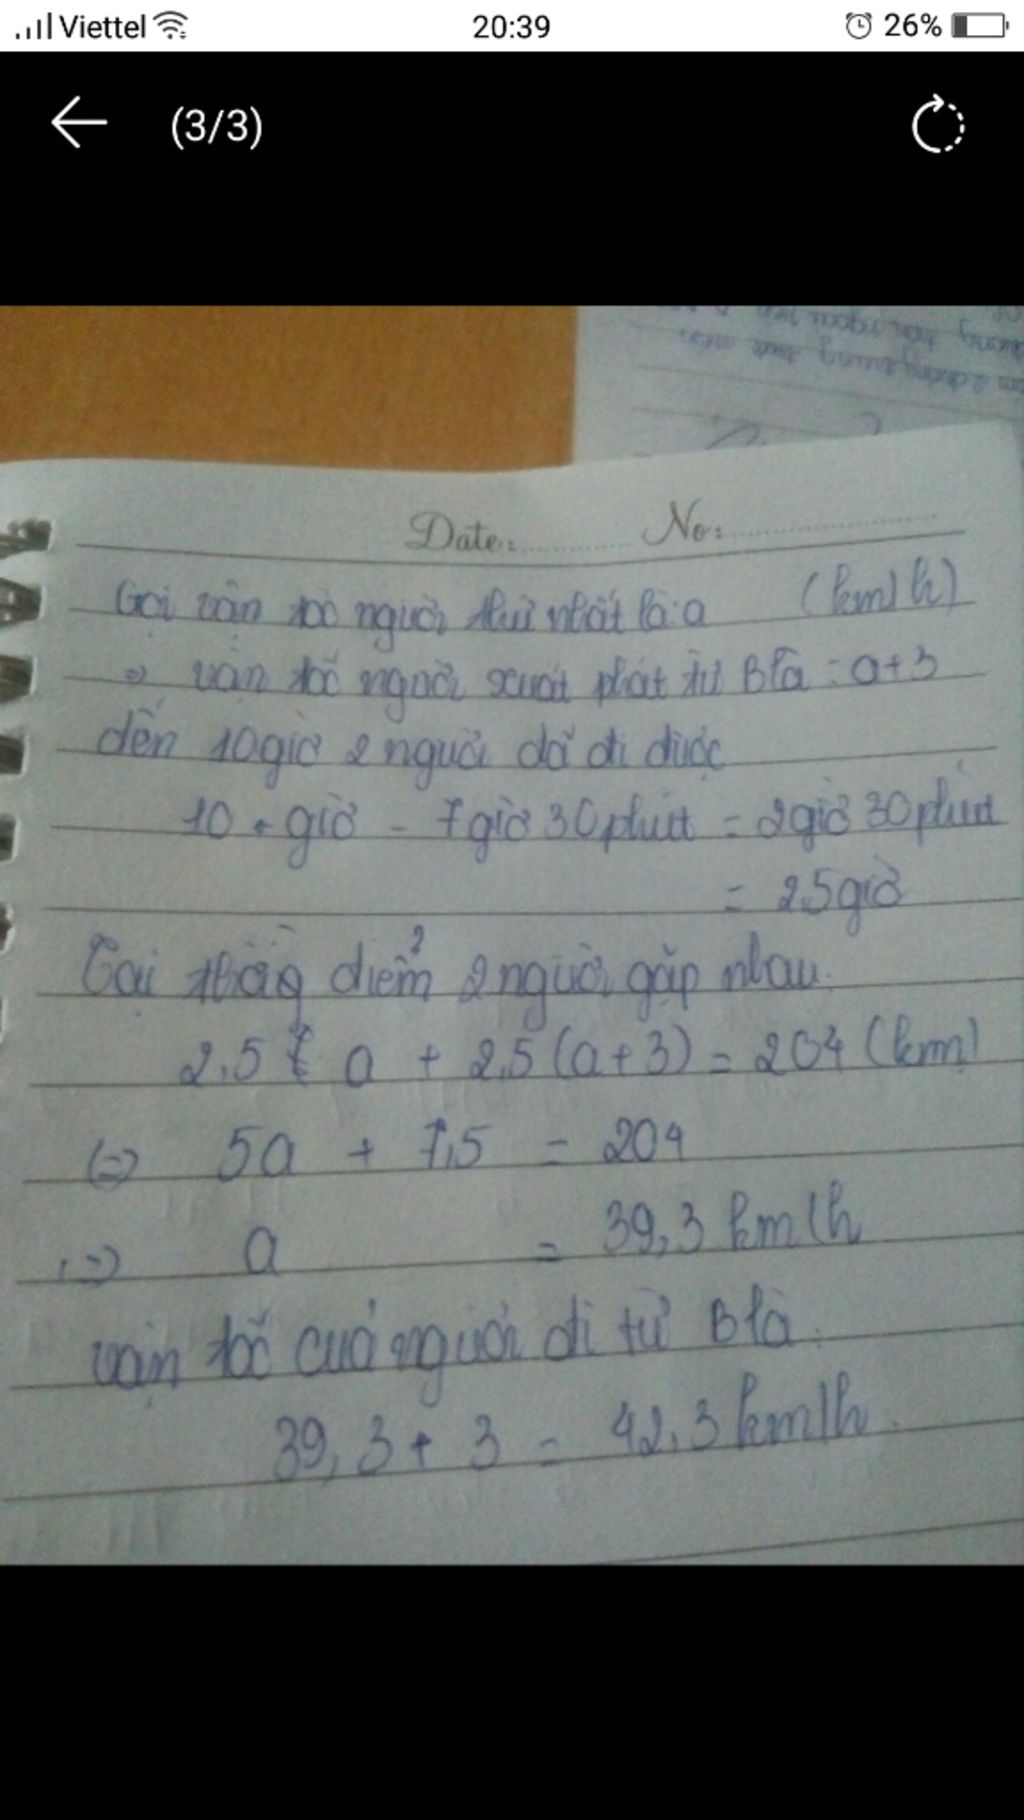 Viettel 20:39 26%
(3/3)
Date: No:
Gọi vận tốc người thứ nhất là: a (km/h)
=> vận tốc người xuất phát từ B là: a+3
đến 10 giờ 2 người đã đi được
10 giờ - 7 giờ 30 phút = 2 giờ 30 phút
= 2,5 giờ
Tại thời điểm 2 người gặp nhau.
2,5 a + 2,5 (a+3) = 204 (km)
(=) 5a + 7,5 = 204
=> a = 39,3 km/h
vận tốc của người đi từ B là.
39,3 + 3 = 42,3 km/h.